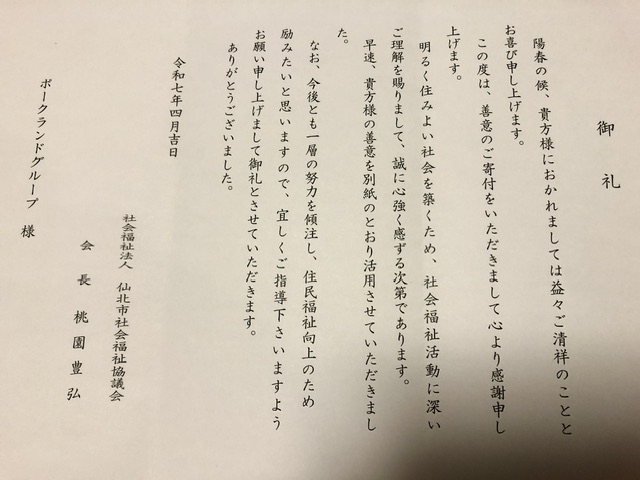 御礼
陽春の候、貴方様におかれましては益々ご清祥のことと
お喜び申し上げます。
この度は、善意のご寄付をいただきまして心より感謝申し
上げます。
明るく住みよい社会を築くため、社会福祉活動に深い
ご理解を賜りまして、誠に心強く感ずる次第であります。
早速、貴方様の善意を別紙のとおり活用させていただきまし
た。
なお、今後とも一層の努力を傾注し、住民福祉向上のため
励みたいと思いますので、宜しくご指導下さいますよう
お願い申し上げまして御礼とさせていただきます。
ありがとうございました。
令和七年四月吉日
社会福祉法人 仙北市社会福祉協議会
会長 桃園豊弘
ポークランドグループ 様